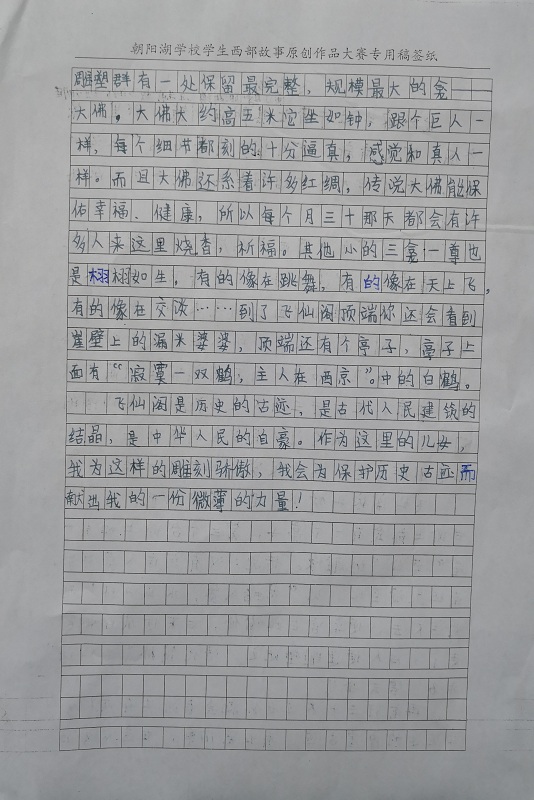 朝阳湖学校学生西部故事原创作品大赛专用稿签纸
雕塑群有一处保留最完整，规模最大的龛——
大佛。大佛大约高五米它坐如钟，跟个巨人一
样，每个细节都刻的十分逼真，感觉和真人一
样。而且大佛还系着许多红绸，传说大佛能保
佑幸福、健康，所以每个月三十那天都会有许
多人来这里烧香，祈福。其他小的三龛一尊也
是栩栩如生，有的像在跳舞，有的像在天上飞，
有的像在交谈……到了飞仙阁顶端你还会看到
崖壁上的漏米婆婆，顶端还有个亭子，亭子上
面有“寂寞一双鹤，主人在西京”。中的白鹤。
飞仙阁是历史的古迹，是古代人民建筑的
结晶，是中华人民的自豪。作为这里的儿女，
我为这样的雕刻骄傲，我会为保护历史古迹而
献出我的一份微薄的力量！